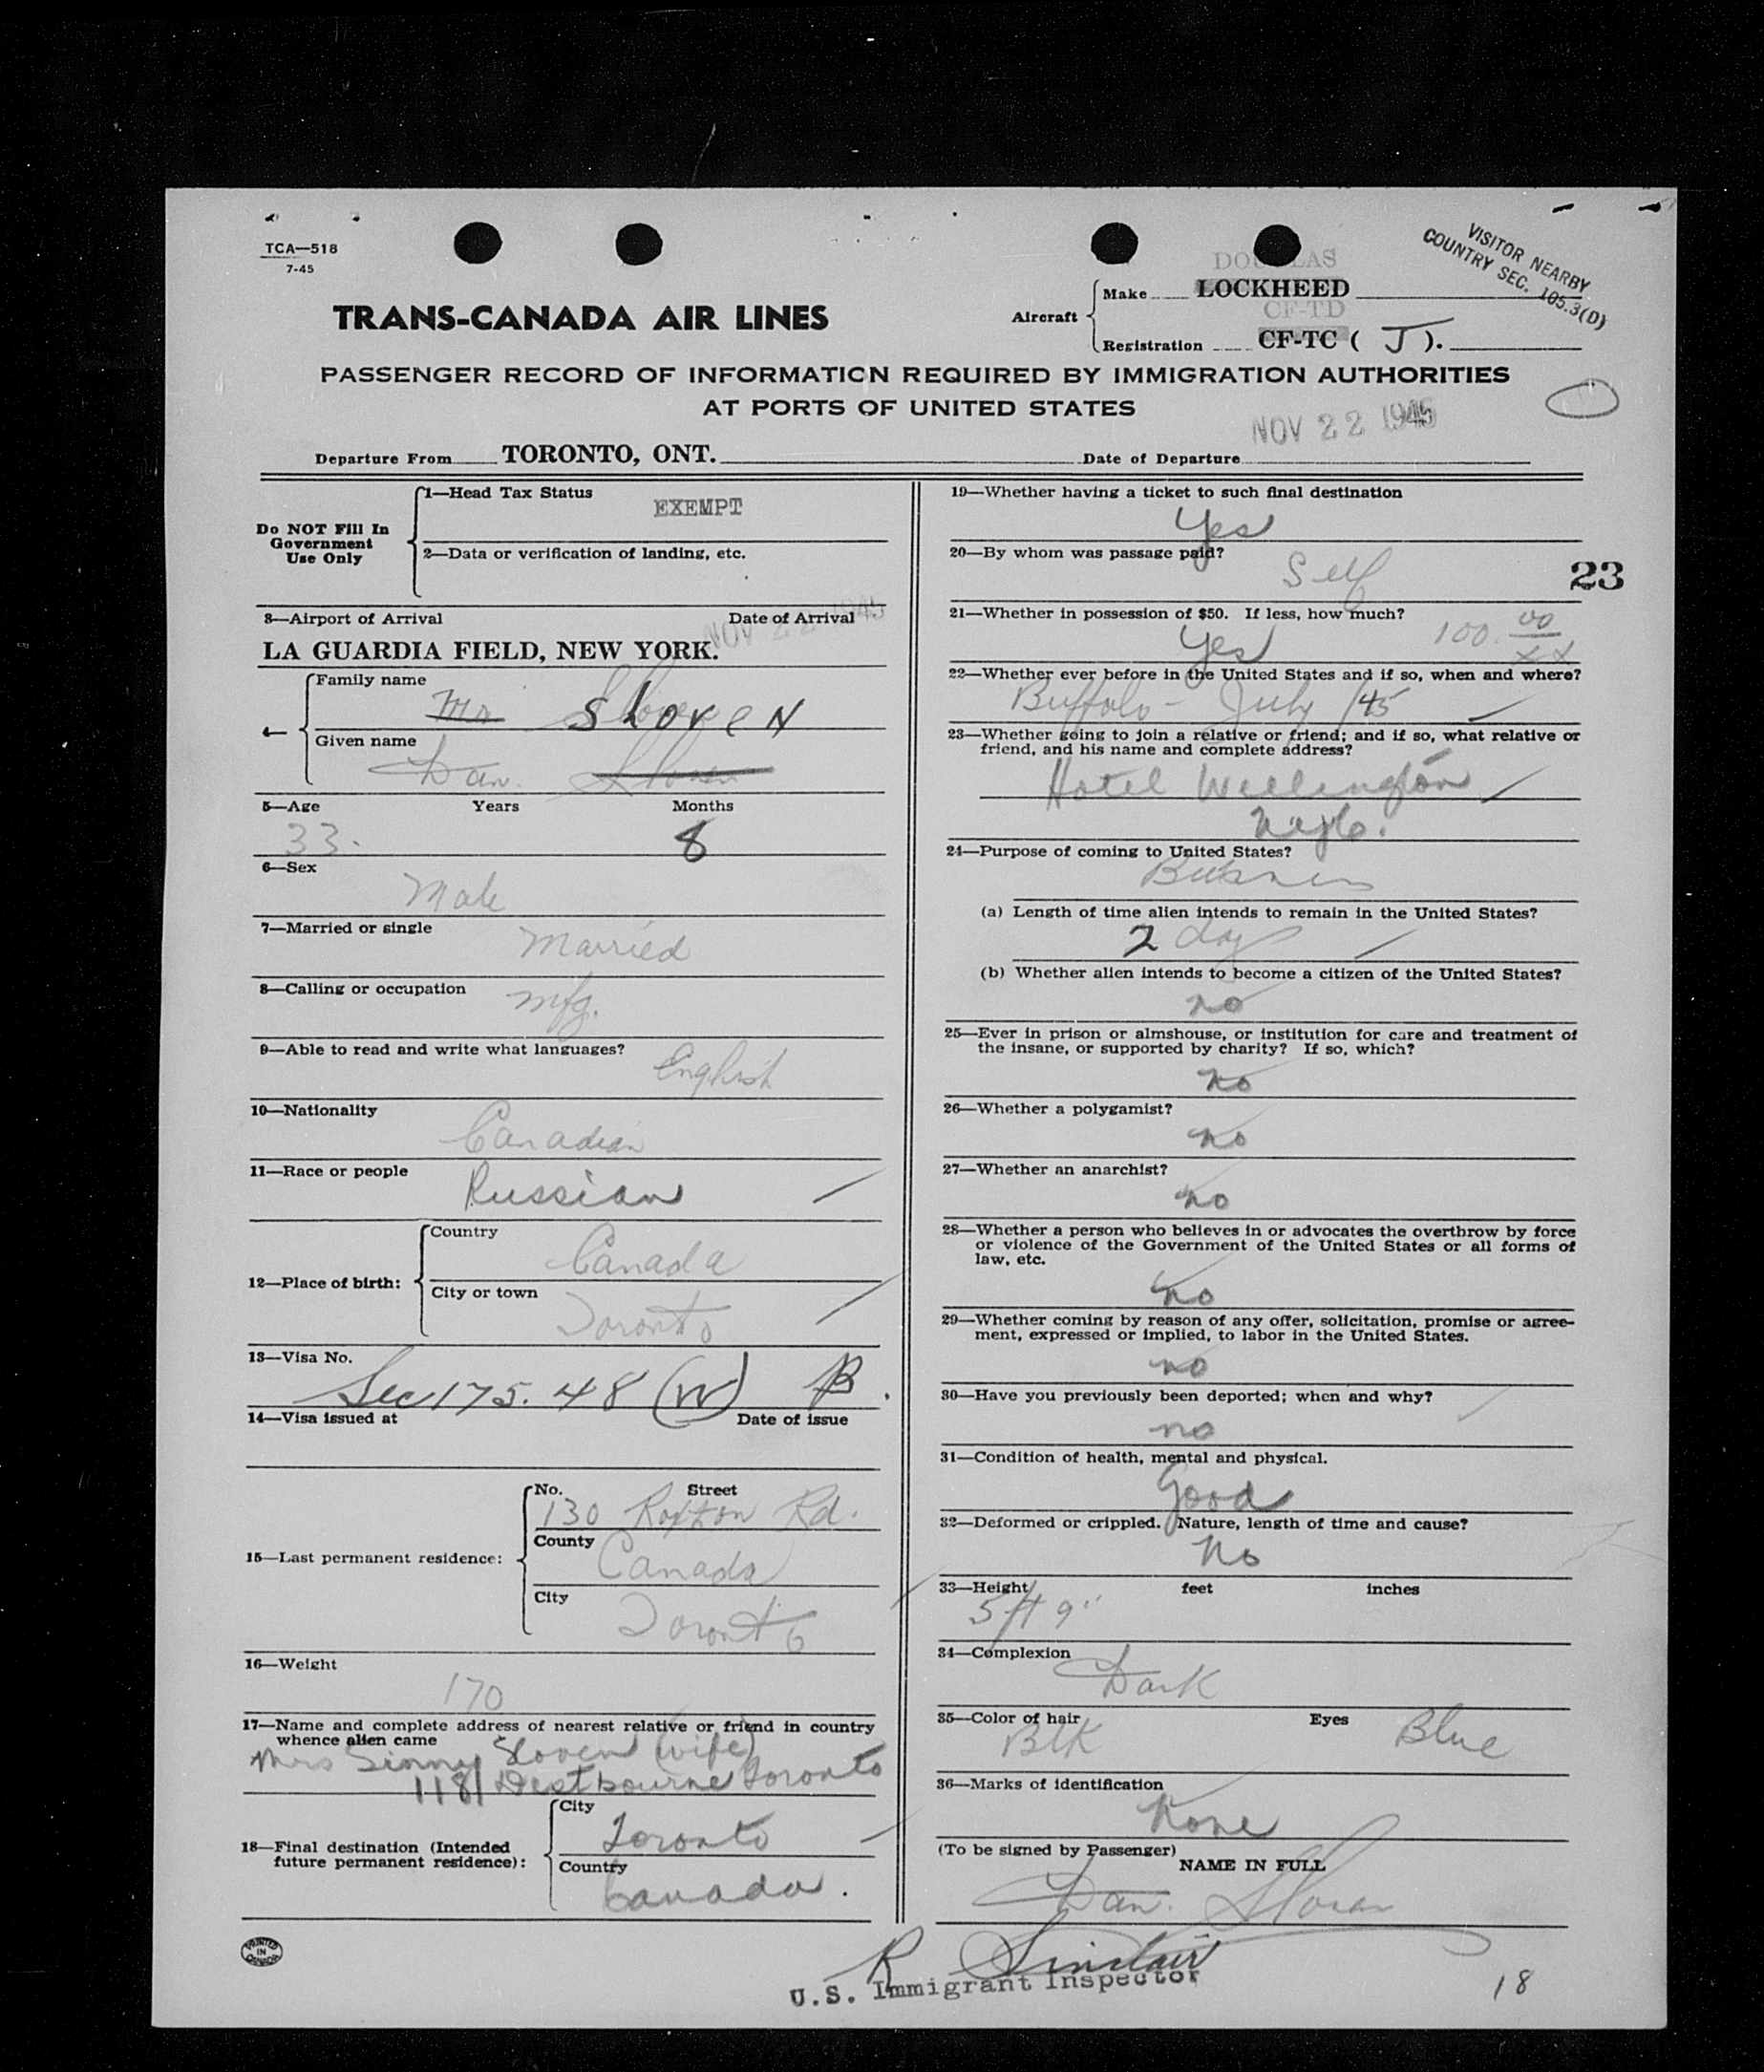 TCA—518
7-45
VISITOR NEARBY
COUNTRY SEC. 105.3(D)
DOUGLAS
Aircraft
Make LOCKHEED
CF-TD
Registration CF-TC ( J ).
TRANS-CANADA AIR LINES
PASSENGER RECORD OF INFORMATION REQUIRED BY IMMIGRATION AUTHORITIES
AT PORTS OF UNITED STATES
NOV 22 1945
Departure From TORONTO, ONT. Date of Departure
Do NOT Fill In
Government
Use Only
1—Head Tax Status EXEMPT
2—Data or verification of landing, etc.
3—Airport of Arrival Date of Arrival
NOV 22 1945
LA GUARDIA FIELD, NEW YORK.
4—
Family name
Mr Sloven
Given name
Dan. Sloven
5—Age Years Months
33. 8
6—Sex
Male
7—Married or single
Married
8—Calling or occupation
Mfg.
9—Able to read and write what languages?
English
10—Nationality
Canadian
11—Race or people
Russian
12—Place of birth:
Country
Canada
City or town
Toronto
13—Visa No.
Sec 175.48 (W) B
14—Visa issued at Date of issue
15—Last permanent residence:
No. Street
130 Roxton Rd.
County
Canada
City
Toronto
16—Weight
170
17—Name and complete address of nearest relative or friend in country
whence alien came
Mrs Sloven (wife)
1181 Toronto
18—Final destination (Intended
future permanent residence):
City
Toronto
Country
Canada.
PRINTED
IN
CANADA
19—Whether having a ticket to such final destination
Yes
20—By whom was passage paid?
Self
23
21—Whether in possession of $50. If less, how much?
Yes 100. 00/xx
22—Whether ever before in the United States and if so, when and where?
Buffalo - July /45
23—Whether going to join a relative or friend; and if so, what relative or
friend, and his name and complete address?
Hotel Wellington
24—Purpose of coming to United States?
Business
(a) Length of time alien intends to remain in the United States?
2 days
(b) Whether alien intends to become a citizen of the United States?
no
25—Ever in prison or almshouse, or institution for care and treatment of
the insane, or supported by charity? If so, which?
no
26—Whether a polygamist?
no
27—Whether an anarchist?
no
28—Whether a person who believes in or advocates the overthrow by force
or violence of the Government of the United States or all forms of
law, etc.
no
29—Whether coming by reason of any offer, solicitation, promise or agree-
ment, expressed or implied, to labor in the United States.
no
30—Have you previously been deported; when and why?
no
31—Condition of health, mental and physical.
Good
32—Deformed or crippled. Nature, length of time and cause?
No
33—Height feet inches
5 ft 9"
34—Complexion
Dark
35—Color of hair Eyes
Blk Blue
36—Marks of identification
None
(To be signed by Passenger)
NAME IN FULL
Dan. Sloven
R Sinclair
U.S. Immigrant Inspector
18